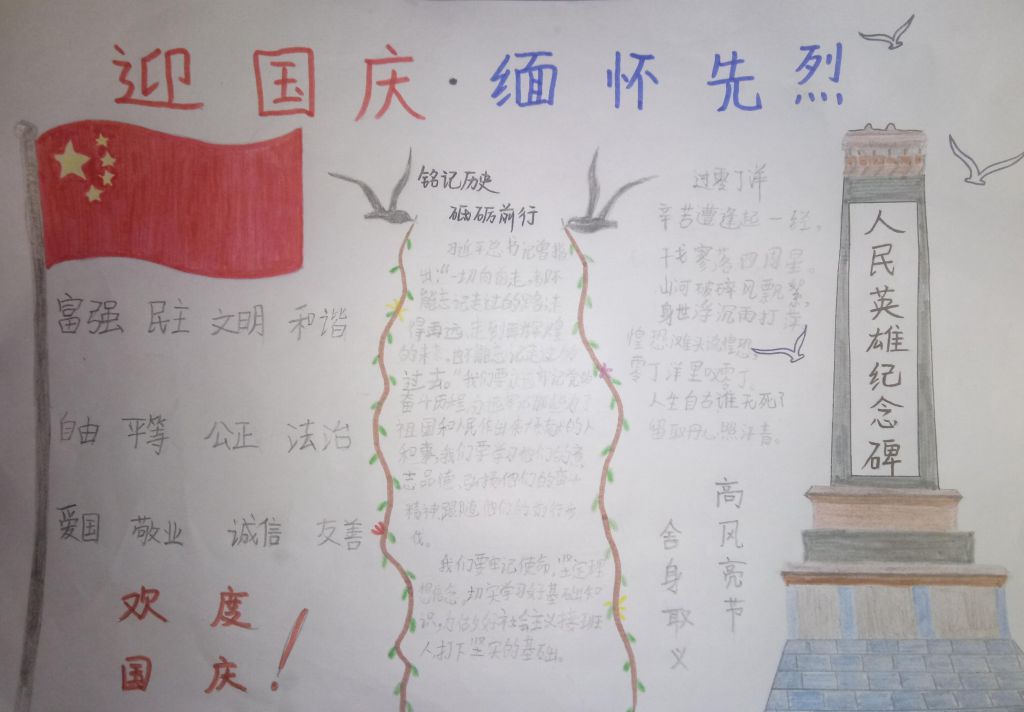 迎国庆·缅怀先烈
富强 民主 文明 和谐
自由 平等 公正 法治
爱国 敬业 诚信 友善
欢度
国庆!
铭记历史
砥砺前行
习近平总书记曾指
出:"一切向前走,都不
能忘记走过的路;走
得再远、走到再辉煌
的未来,也不能忘记走过的
过去。"我们要永远牢记党的
奋斗历程,
祖国和人民作出杰出贡献的人
和事,我们要学习他们的意
志品德、他们的奋斗
精神,跟随他们的前行步
伐。
我们要牢记使命,坚定理
想信念,切实学习好基础知
识,为做好社会主义接班
人打下坚实的基础。
过零丁洋
辛苦遭逢起一经,
干戈寥落四周星。
山河破碎风飘絮,
身世浮沉雨打萍
惶恐滩头说惶恐,
零丁洋里叹零丁。
人生自古谁无死?
留取丹心照汗青。
高风亮节
舍身取义
人民英雄纪念碑